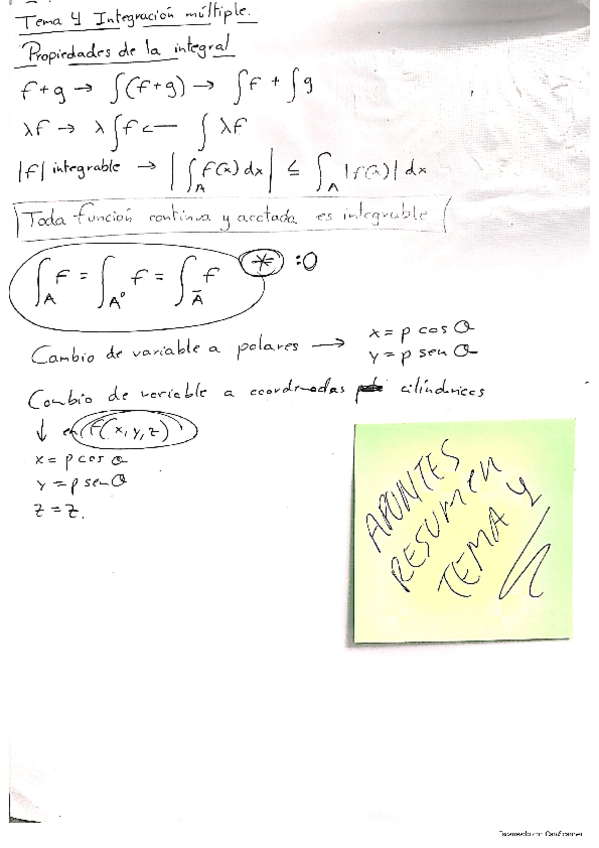 Tema 4 Integración múltiple.
Propiedades de la integral
f+g → ∫(f+g) → ∫f + ∫g
λf → λ∫f ← ∫ λf
|f| integrable → |∫_A f(x) dx| ≤ ∫_A |f(x)| dx
Toda función continua y acotada es integrable
∫_A f = ∫_A° f = ∫_Ā f * :O
Cambio de variable a polares → x = ρ cos θ
y = ρ sen θ
Cambio de variable a coordenadas cilíndricas
↓ en f(x,y,z)
x = ρ cos θ
y = ρ sen θ
z = z.
APUNTES
RESUMEN
TEMA 4
Escaneado con CamScanner